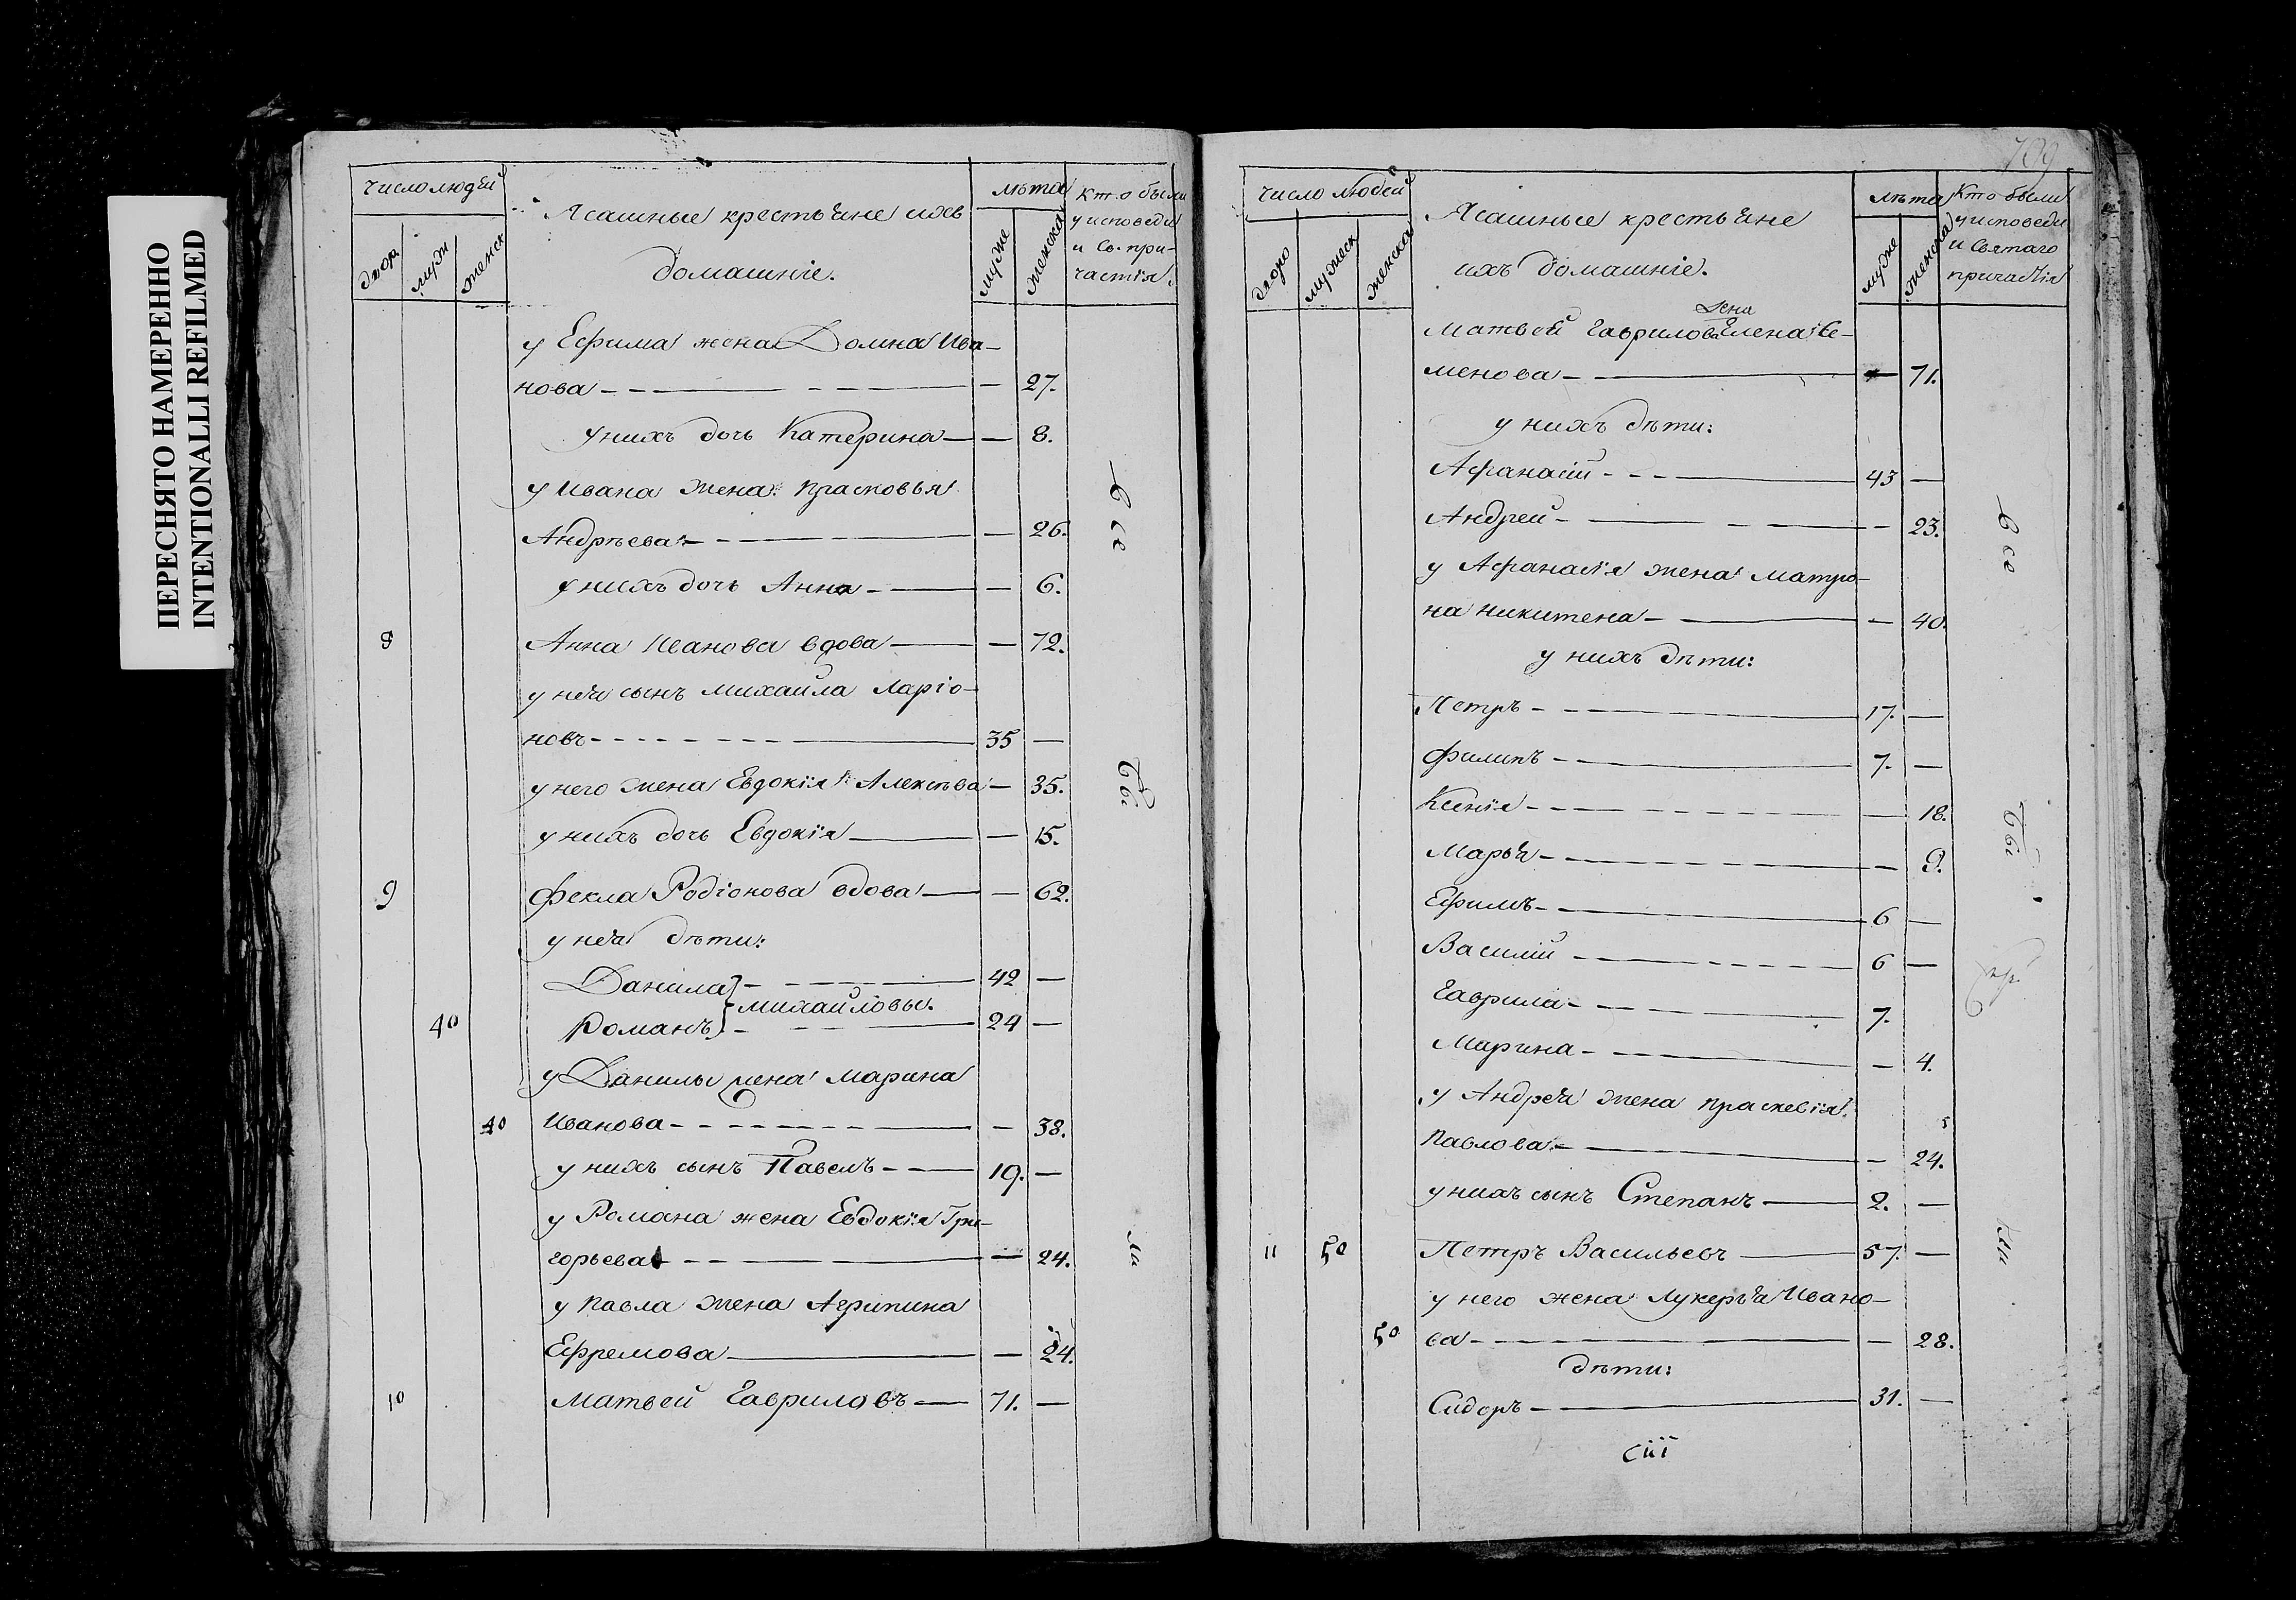 ПЕРЕСНЯТО НАМЕРЕННО
INTENTIONALLI REFILMED
число людей
двор
муж
женск
Ясашные крестьяне ихъ
домашніе.
лѣта
муже
женска
Кто были
у исповеди
и Св. при-
частія.
у Ефима жена Домна Ива-
нова 27.
у нихъ дочь Катерина 8.
у Ивана жена Прасковья
Андрѣева 26.
у нихъ дочь Анна 6.
8 Анна Иванова вдова 72.
у нея сынъ Михаила Ларіо-
новъ 35
у него жена Евдокія Алексѣва 35.
у нихъ дочь Евдокія 15.
9 Фекла Родіонова вдова 62.
у нея дѣти:
Данила 42
Михайловы.
40 Романъ 24
у Данилы жена Марина
40 Иванова 38.
у нихъ сынъ Павелъ 19.
у Романа жена Евдокія Гри-
горьева 24.
у Павла жена Агрипина
Ефремова 24.
10 Матвей Гавриловъ 71.
Все
бы
ли
709
число людей
дворо
мужеск
женска
Ясашные крестьяне
ихъ домашніе.
лѣта
муже
женска
Кто были
у исповеди
и Святаго
причастія
жена
Матвей Гаврилова Елена Се-
менова 71.
у нихъ дѣти:
Афанасій 43
Андрей 23.
у Афанасія жена Матро-
на Никитена 40.
у нихъ дѣти:
Петръ 17.
Филипъ 7.
Ксенія 18.
Марья 9.
Ефимъ 6
Василій 6
Гаврила 7.
Марина 4.
у Андрея жена Праскевія
Павлова 24.
у нихъ сынъ Степанъ 2.
11 50 Петръ Васильевъ 57.
у него жена Лукерья Ивано-
50 ва 28.
дѣти:
Сидоръ 31.
Все
бы
ли